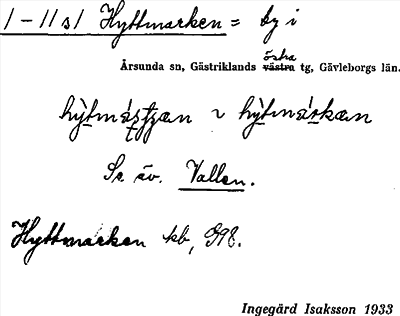 1-11 s1 Hyttmarken = by i
östra
Årsunda sn, Gästriklands västra tg, Gävleborgs län.
hỳtmás̱ʈʂan ~ hỳtmárkan
Se äv. Vallen.
Hyttmarken kb, G98.
Ingegärd Isaksson 1933